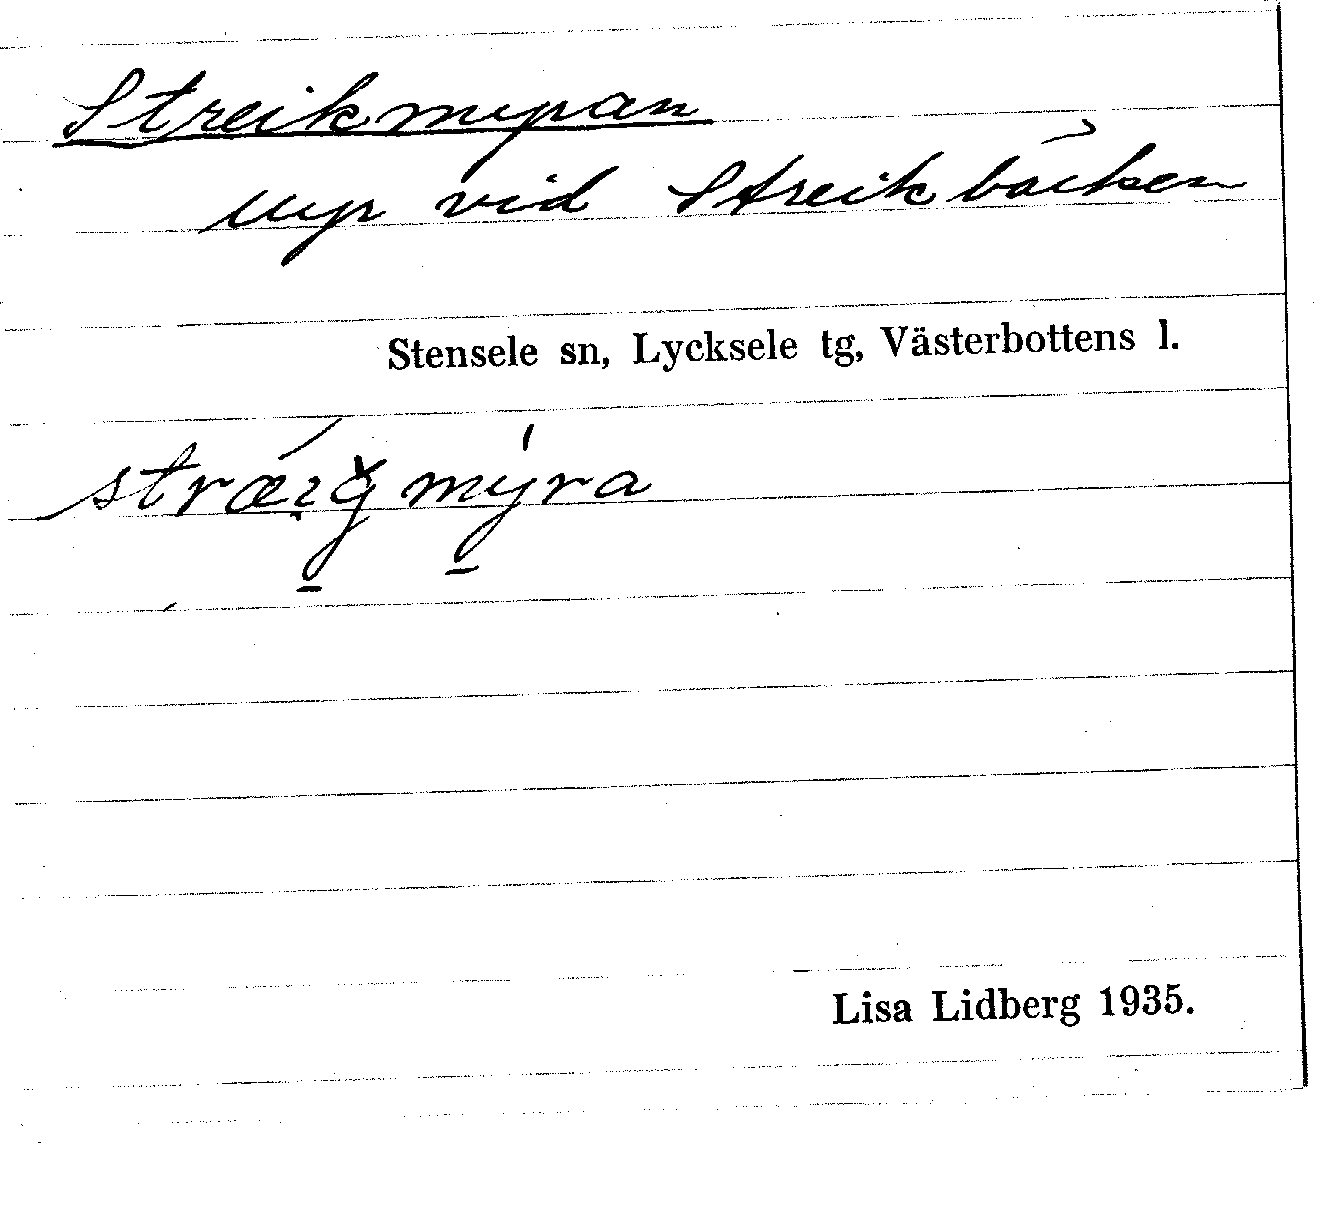 Streikmyran
myr vid Streikbäcken
Stensele sn, Lycksele tg, Västerbottens l.
Lisa Lidberg 1935.